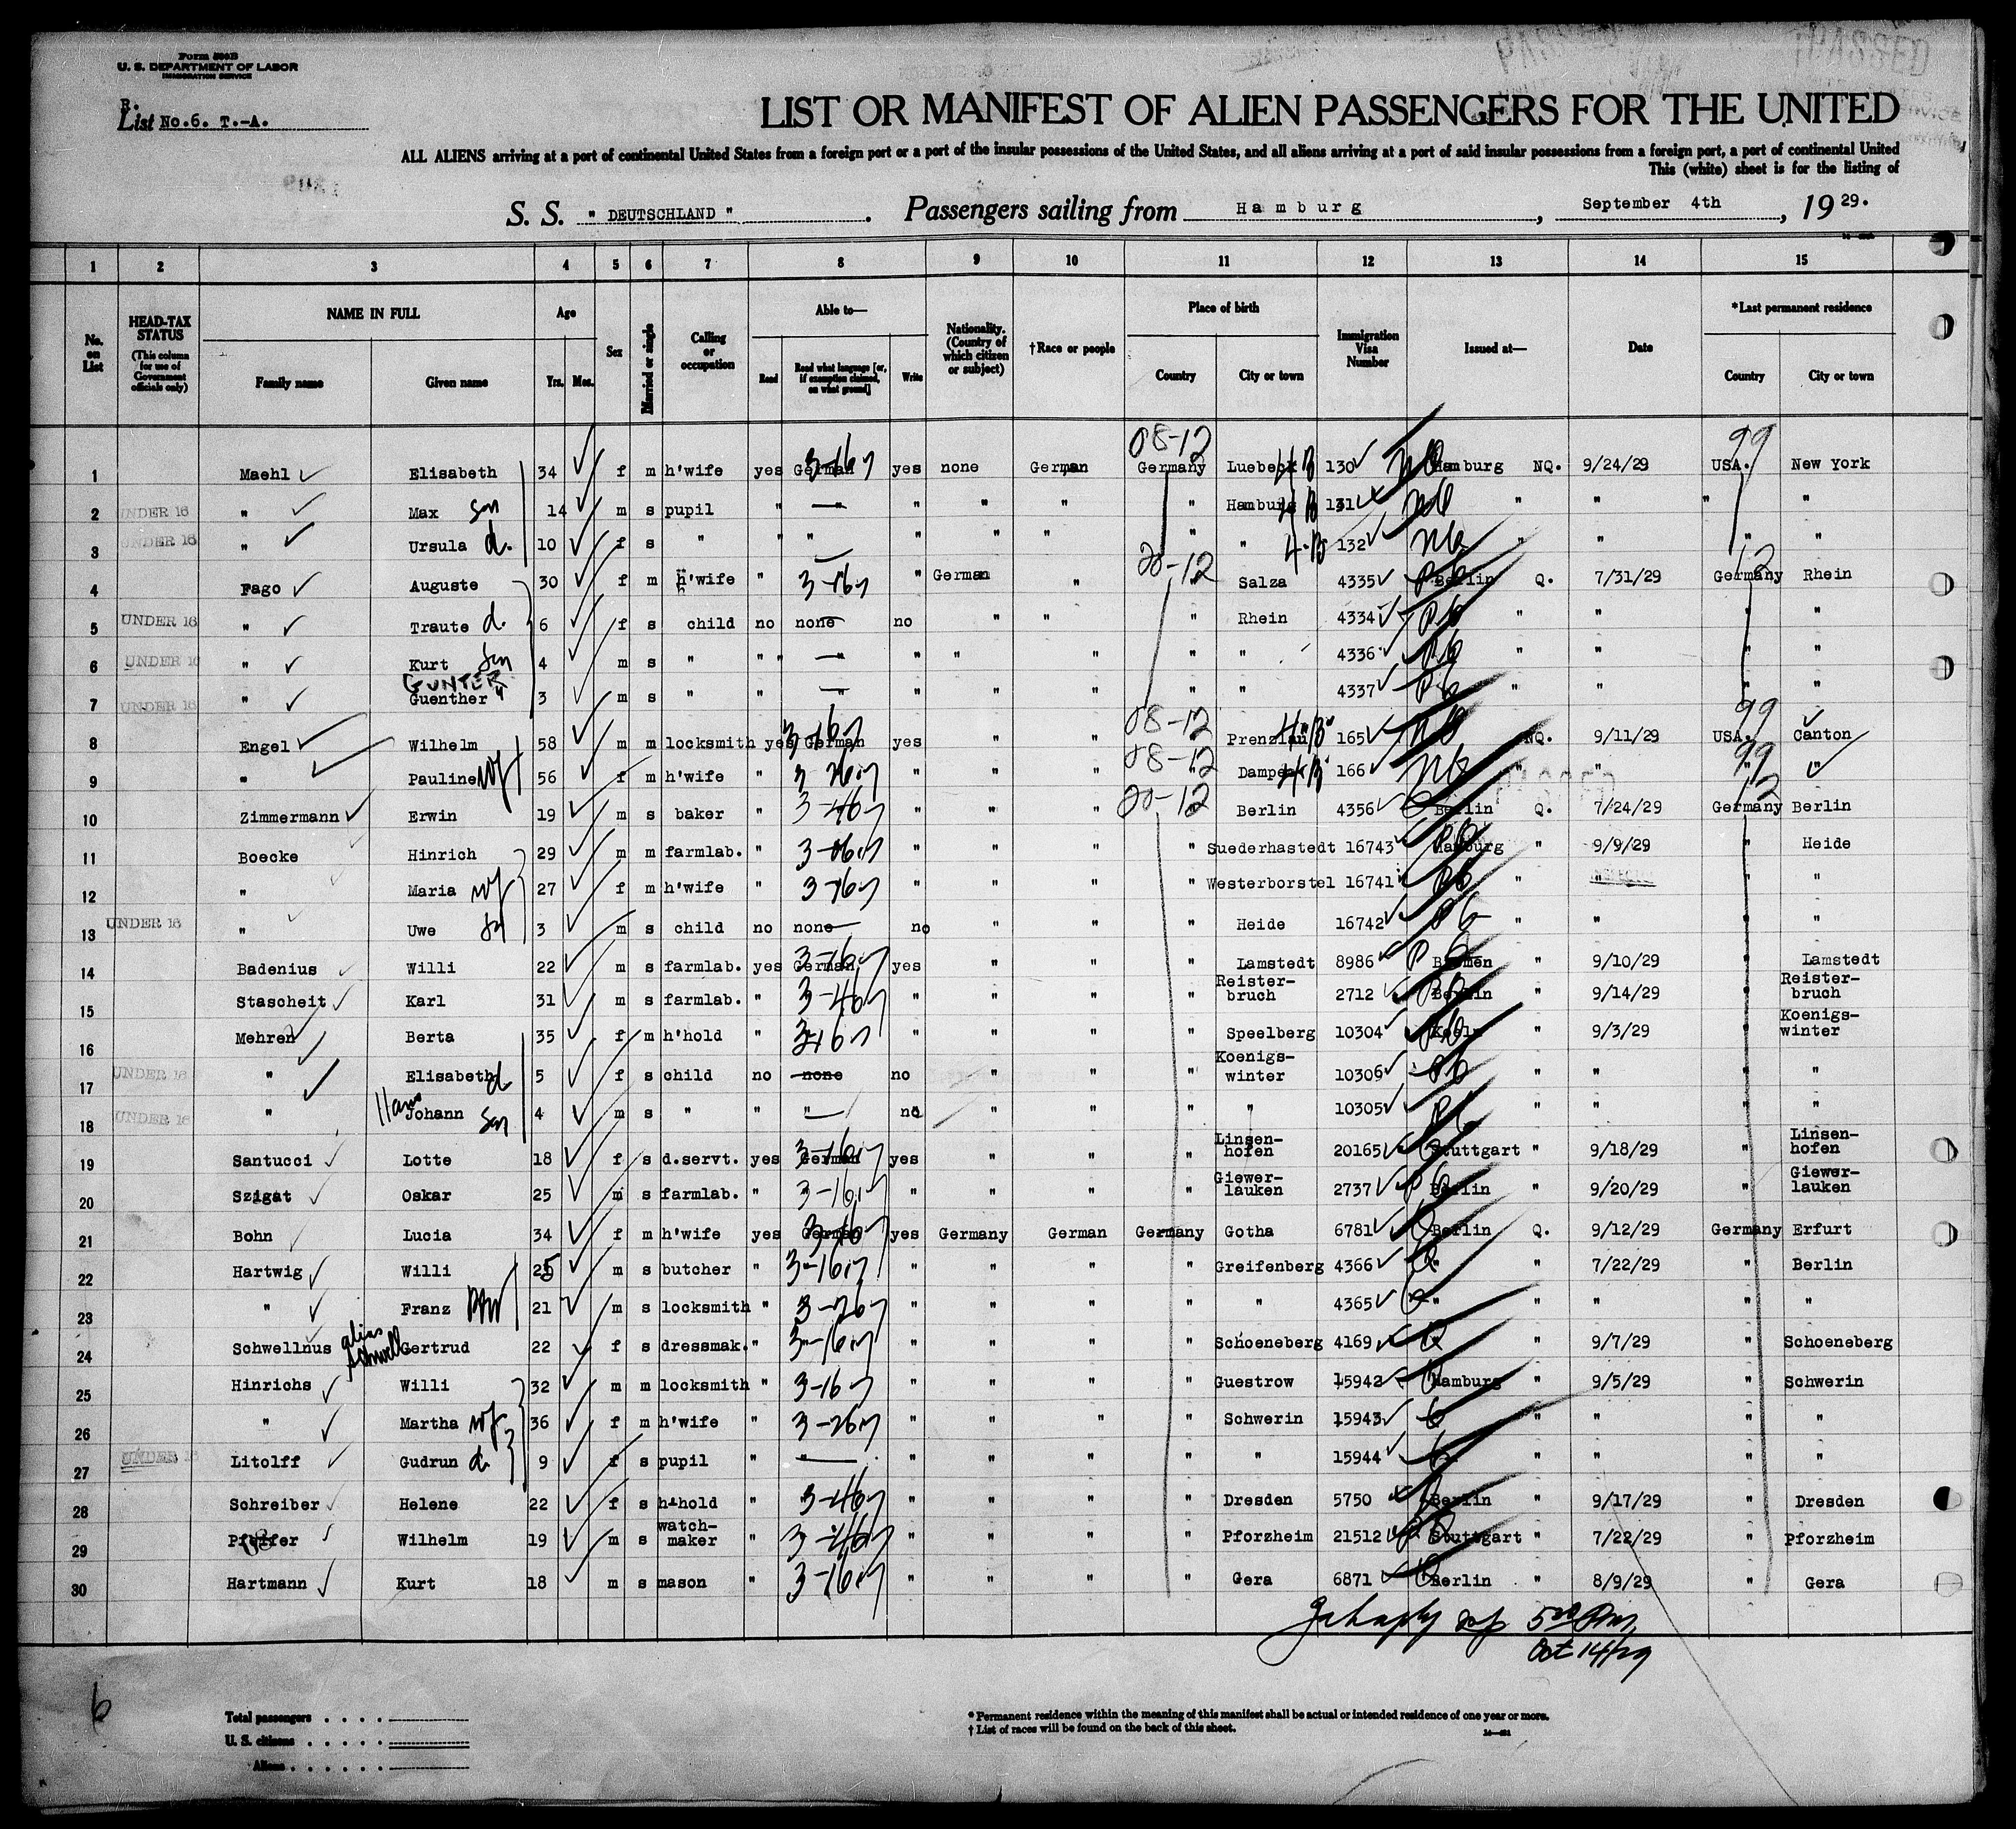 Form 500B
U. S. DEPARTMENT OF LABOR
IMMIGRATION SERVICE
R.
List No.6. T.-A.
LIST OR MANIFEST OF ALIEN PASSENGERS FOR THE UNITED
ALL ALIENS arriving at a port of continental United States from a foreign port or a port of the insular possessions of the United States, and all aliens arriving at a port of said insular possessions from a foreign port, a port of continental United
This (white) sheet is for the listing of
S. S. " DEUTSCHLAND ". Passengers sailing from Hamburg, September 4th, 19 29.
1 2 3 4 5 6 7 8 9 10 11 12 13 14 15
No. on List
HEAD-TAX STATUS (This column for use of Government officials only)
NAME IN FULL Family name Given name
Age Yrs. Mos.
Sex
Married or single
Calling or occupation
Able to— Read Read what language [or, if exemption claimed, on what ground] Write
Nationality. (Country of which citizen or subject)
†Race or people
Place of birth Country City or town
Immigration Visa Number
Issued at—
Date
*Last permanent residence Country City or town
08-12 99
1 Maehl Elisabeth 34 f m h'wife yes German yes none German Germany Luebeck 130 Hamburg NQ. 9/24/29 USA. New York
2 UNDER 16 " Max son 14 m s pupil " " " " " " Hamburg 131 " " " "
3 UNDER 16 " Ursula d. 10 f s " " " " " " " " 132 " " " "
20-12 12
4 Fago Auguste 30 f m h'wife " 3-16 " German " Salza 4335 Berlin Q. 7/31/29 Germany Rhein
5 UNDER 16 " Traute d. 6 f s child no none no " " " Rhein 4334 " " " "
6 UNDER 16 " Kurt son 4 m s " " " " " " " " 4336 " " " "
GUNTER
7 UNDER 16 " Guenther " 3 m s " " " " " " " " 4337 " " " "
08-12 99
8 Engel Wilhelm 58 m m locksmith yes German yes " " Prenzlau 165 NQ. 9/11/29 USA. Canton
08-12 99
9 " Pauline wf 56 f m h'wife " " " " " 166 " " "
20-12 12
10 Zimmermann Erwin 19 m s baker " " " " Berlin 4356 Berlin Q. 7/24/29 Germany Berlin
11 Boecke Hinrich 29 m m farmlab. " " " " " Suederhastedt 16743 Hamburg " 9/9/29 " Heide
12 " Maria wf 27 f m h'wife " 3-16 " " " " Westerborstel 16741 " " " "
13 UNDER 16 " Uwe 3 m s child no none no " " " Heide 16742 " " " "
14 Badenius Willi 22 m s farmlab. yes German yes " " " Lamstedt 8986 Bremen " 9/10/29 " Lamstedt
15 Stascheit Karl 31 m s farmlab. " " " " " Reister-bruch 2712 Berlin " 9/14/29 " Reister-bruch
16 Mehren Berta 35 f m h'hold " " " " " Speelberg 10304 Koeln " 9/3/29 " Koenigs-winter
17 UNDER 16 " Elisabeth d 5 f s child no none no " " " Koenigs-winter 10306 " " " "
18 UNDER 16 " Hans Johann son 4 m s " " " no " " " " 10305 " " " "
19 Santucci Lotte 18 f s d.servt. yes German yes " " " Linsen-hofen 20165 Stuttgart " 9/18/29 " Linsen-hofen
20 Szigat Oskar 25 m s farmlab. " " " " " Giewer-lauken 2737 Berlin " 9/20/29 " Giewer-lauken
21 Bohn Lucia 34 f m h'wife yes German yes Germany German Germany Gotha 6781 Berlin Q. 9/12/29 Germany Erfurt
22 Hartwig Willi 25 m s butcher " " " " " Greifenberg 4366 " " 7/22/29 " Berlin
23 " Franz 21 m s locksmith " " " " " " 4365 " " " " "
24 Schwellnus alias Schwell Gertrud 22 f s dressmak. " " " " " Schoeneberg 4169 " 9/7/29 " Schoeneberg
25 Hinrichs Willi 32 m m locksmith " 3-16 " " " " Guestrow 15942 Hamburg " 9/5/29 " Schwerin
26 " Martha wf 36 f m h'wife " " " " " Schwerin 15943 " " " "
27 UNDER 16 Litolff Gudrun d. 9 f s pupil " " " " " " " 15944 " " " "
28 Schreiber Helene 22 f s h-hold " " " " " Dresden 5750 Berlin " 9/17/29 " Dresden
29 Pfeiffer Wilhelm 19 m s watch-maker " " " " " Pforzheim 21512 Stuttgart " 7/22/29 " Pforzheim
30 Hartmann Kurt 18 m s mason " " " " " Gera 6871 Berlin " 8/9/29 " Gera
Oct 14/29
6
Total passengers . . . .
U. S. citizens . . . . .
Aliens . . . . . .
* Permanent residence within the meaning of this manifest shall be actual or intended residence of one year or more.
† List of races will be found on the back of this sheet.